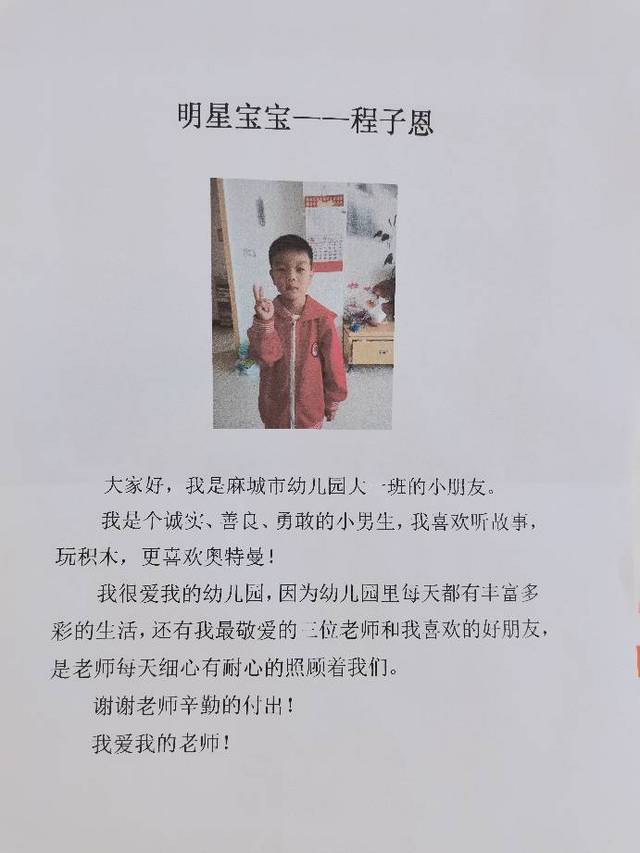 明星宝宝——程子恩
大家好，我是麻城市幼儿园大一班的小朋友。
我是个诚实、善良、勇敢的小男生，我喜欢听故事，
玩积木，更喜欢奥特曼！
我很爱我的幼儿园，因为幼儿园里每天都有丰富多
彩的生活，还有我最敬爱的三位老师和我喜欢的好朋友，
是老师每天细心有耐心的照顾着我们。
谢谢老师辛勤的付出！
我爱我的老师！